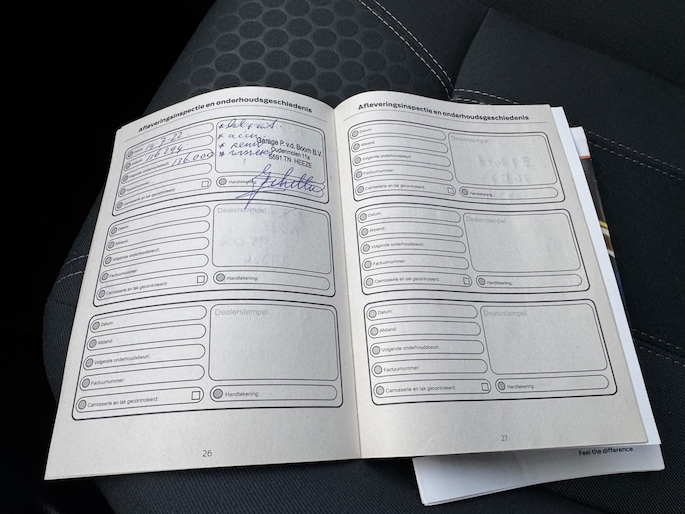 Afleveringsinspectie en onderhoudsgeschiedenis
116294
136.000
Garage P. v.d. Boom B.V.
Oudenmolen 11a
5591 TN HEEZE
Datum:
Afstand:
Volgende onderhoudsbeurt:
Factuurnummer:
Carrosserie en lak gecontroleerd:
Dealerstempel
Handtekening:
Datum:
Afstand:
Volgende onderhoudsbeurt:
Factuurnummer:
Carrosserie en lak gecontroleerd:
Dealerstempel
Handtekening:
26
Afleveringsinspectie en onderhoudsgeschiedenis
Datum:
Afstand:
Volgende onderhoudsbeurt:
Factuurnummer:
Carrosserie en lak gecontroleerd:
Dealerstempel
Handtekening:
Datum:
Afstand:
Volgende onderhoudsbeurt:
Factuurnummer:
Carrosserie en lak gecontroleerd:
Dealerstempel
Handtekening:
Datum:
Afstand:
Volgende onderhoudsbeurt:
Factuurnummer:
Carrosserie en lak gecontroleerd:
Dealerstempel
Handtekening:
27
Feel the difference